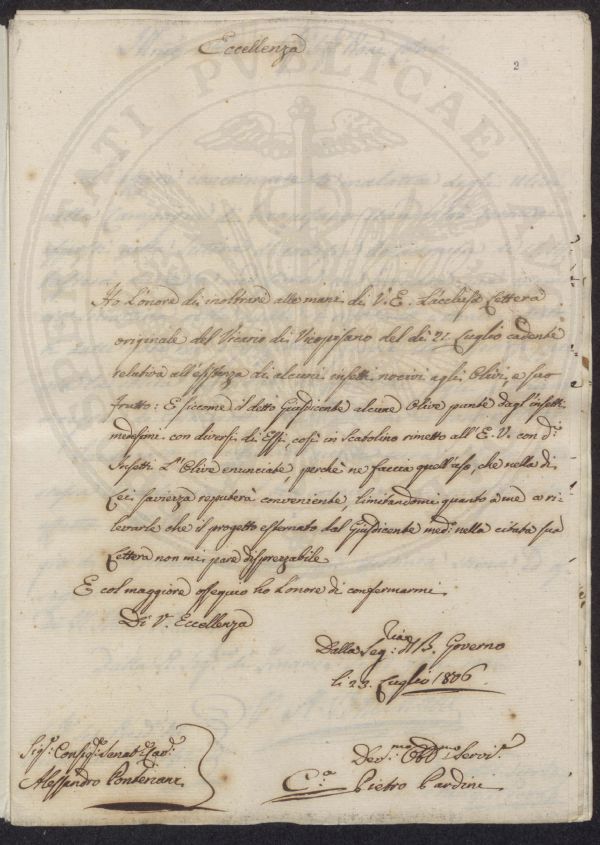 Eccellenza
2
Ho L'onore di inoltrare alle mani di V. E. L'acclusa Lettera
originale del Vicario di Vicopisano del dì 21. Luglio cadente
relativa all'esistenza di alcuni insetti nocivi agli Olivi, e suo
frutto: E siccome il detto Giusdicente alcune Olive punte dagl'insetti
medesimi con diversi di Essi, così in Scatolino rimetto all'E. V. con d.i
Insetti L'Olive enunciate, perchè ne faccia quell'uso, che nella di
Lei saviezza reputerà conveniente, limitandomi quanto a me a ri-
levarle che il progetto esternato dal Giusdicente med.o nella citata sua
Lettera non mi pare disprezzabile.
E col maggiore ossequio ho L'onore di confermarmi
Di V. Eccellenza
Dalla Seg.ria di B. Governo
li 23. Luglio 1806
Sig.r Consig.re Senat.re
Alessandro Pontenani
Dev.mo Obb.mo Servi.e
C.a Pietro Pardini
PVBLICAE